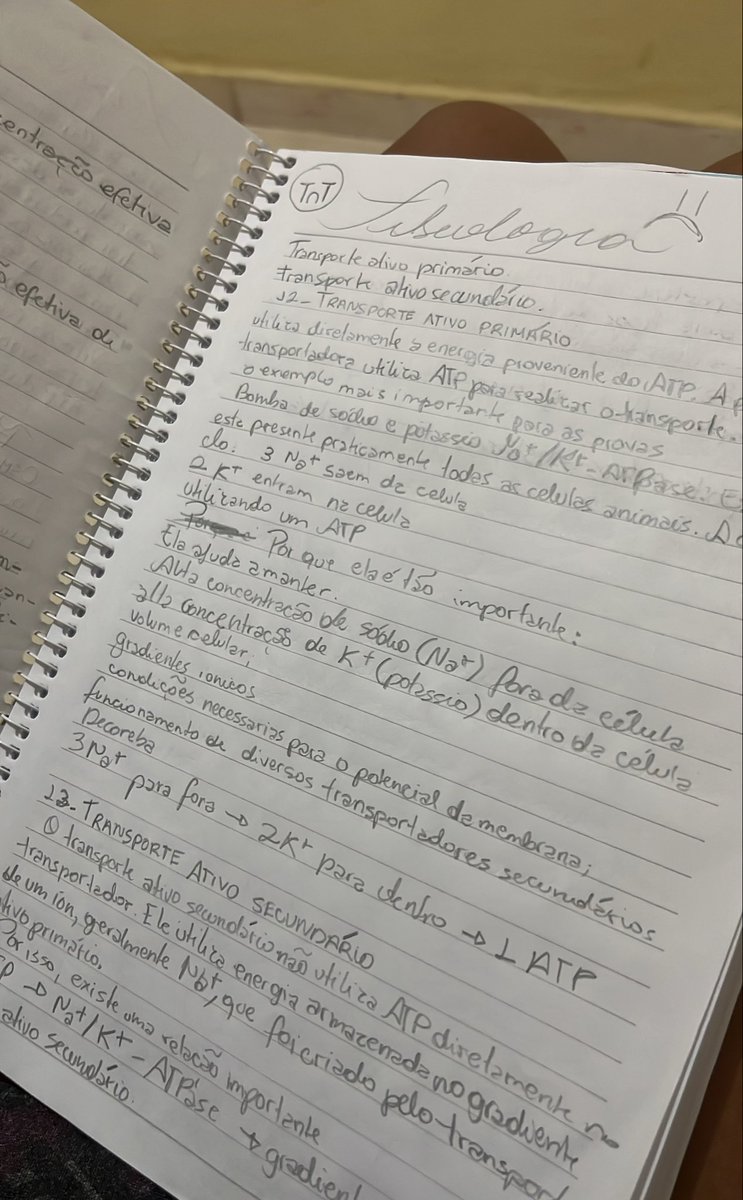 entração efetiva
efetiva de
TnT
Transporte ativo primário.
transporte ativo secundário.
12- TRANSPORTE ATIVO PRIMÁRIO
utiliza diretamente a energia proveniente do ATP. A
transportadora utiliza ATP para realizar o transporte.
o exemplo mais importante para as provas
Bomba de sódio e potássio Na+/K+- ATPase.
este presente praticamente todas as celulas animais. A
do: 3 Na+ saem da celula
2 K+ entram na celula
utilizando um ATP
Por que ela é tão importante:
Ela ajuda a manter.
Alta concentração de sódio (Na+) fora da célula
alta concentração de K+ (potassio) dentro da célula
volume celular;
gradientes ionicos
condições necessarias para o potencial de membrana;
funcionamento de diversos transportadores secundários
Decoreba
3Na+ para fora → 2K+ para dentro → 1 ATP
13- TRANSPORTE ATIVO SECUNDÁRIO
O transporte ativo secundário não utiliza ATP diretamente no
transportador. Ele utiliza energia armazenada no gradiente
de um íon, geralmente Na+, que foi criado pelo transport
ativo primário.
Por isso, existe uma relação importante
→ Na+/K+ - ATPase → gradient
ativo secundário.